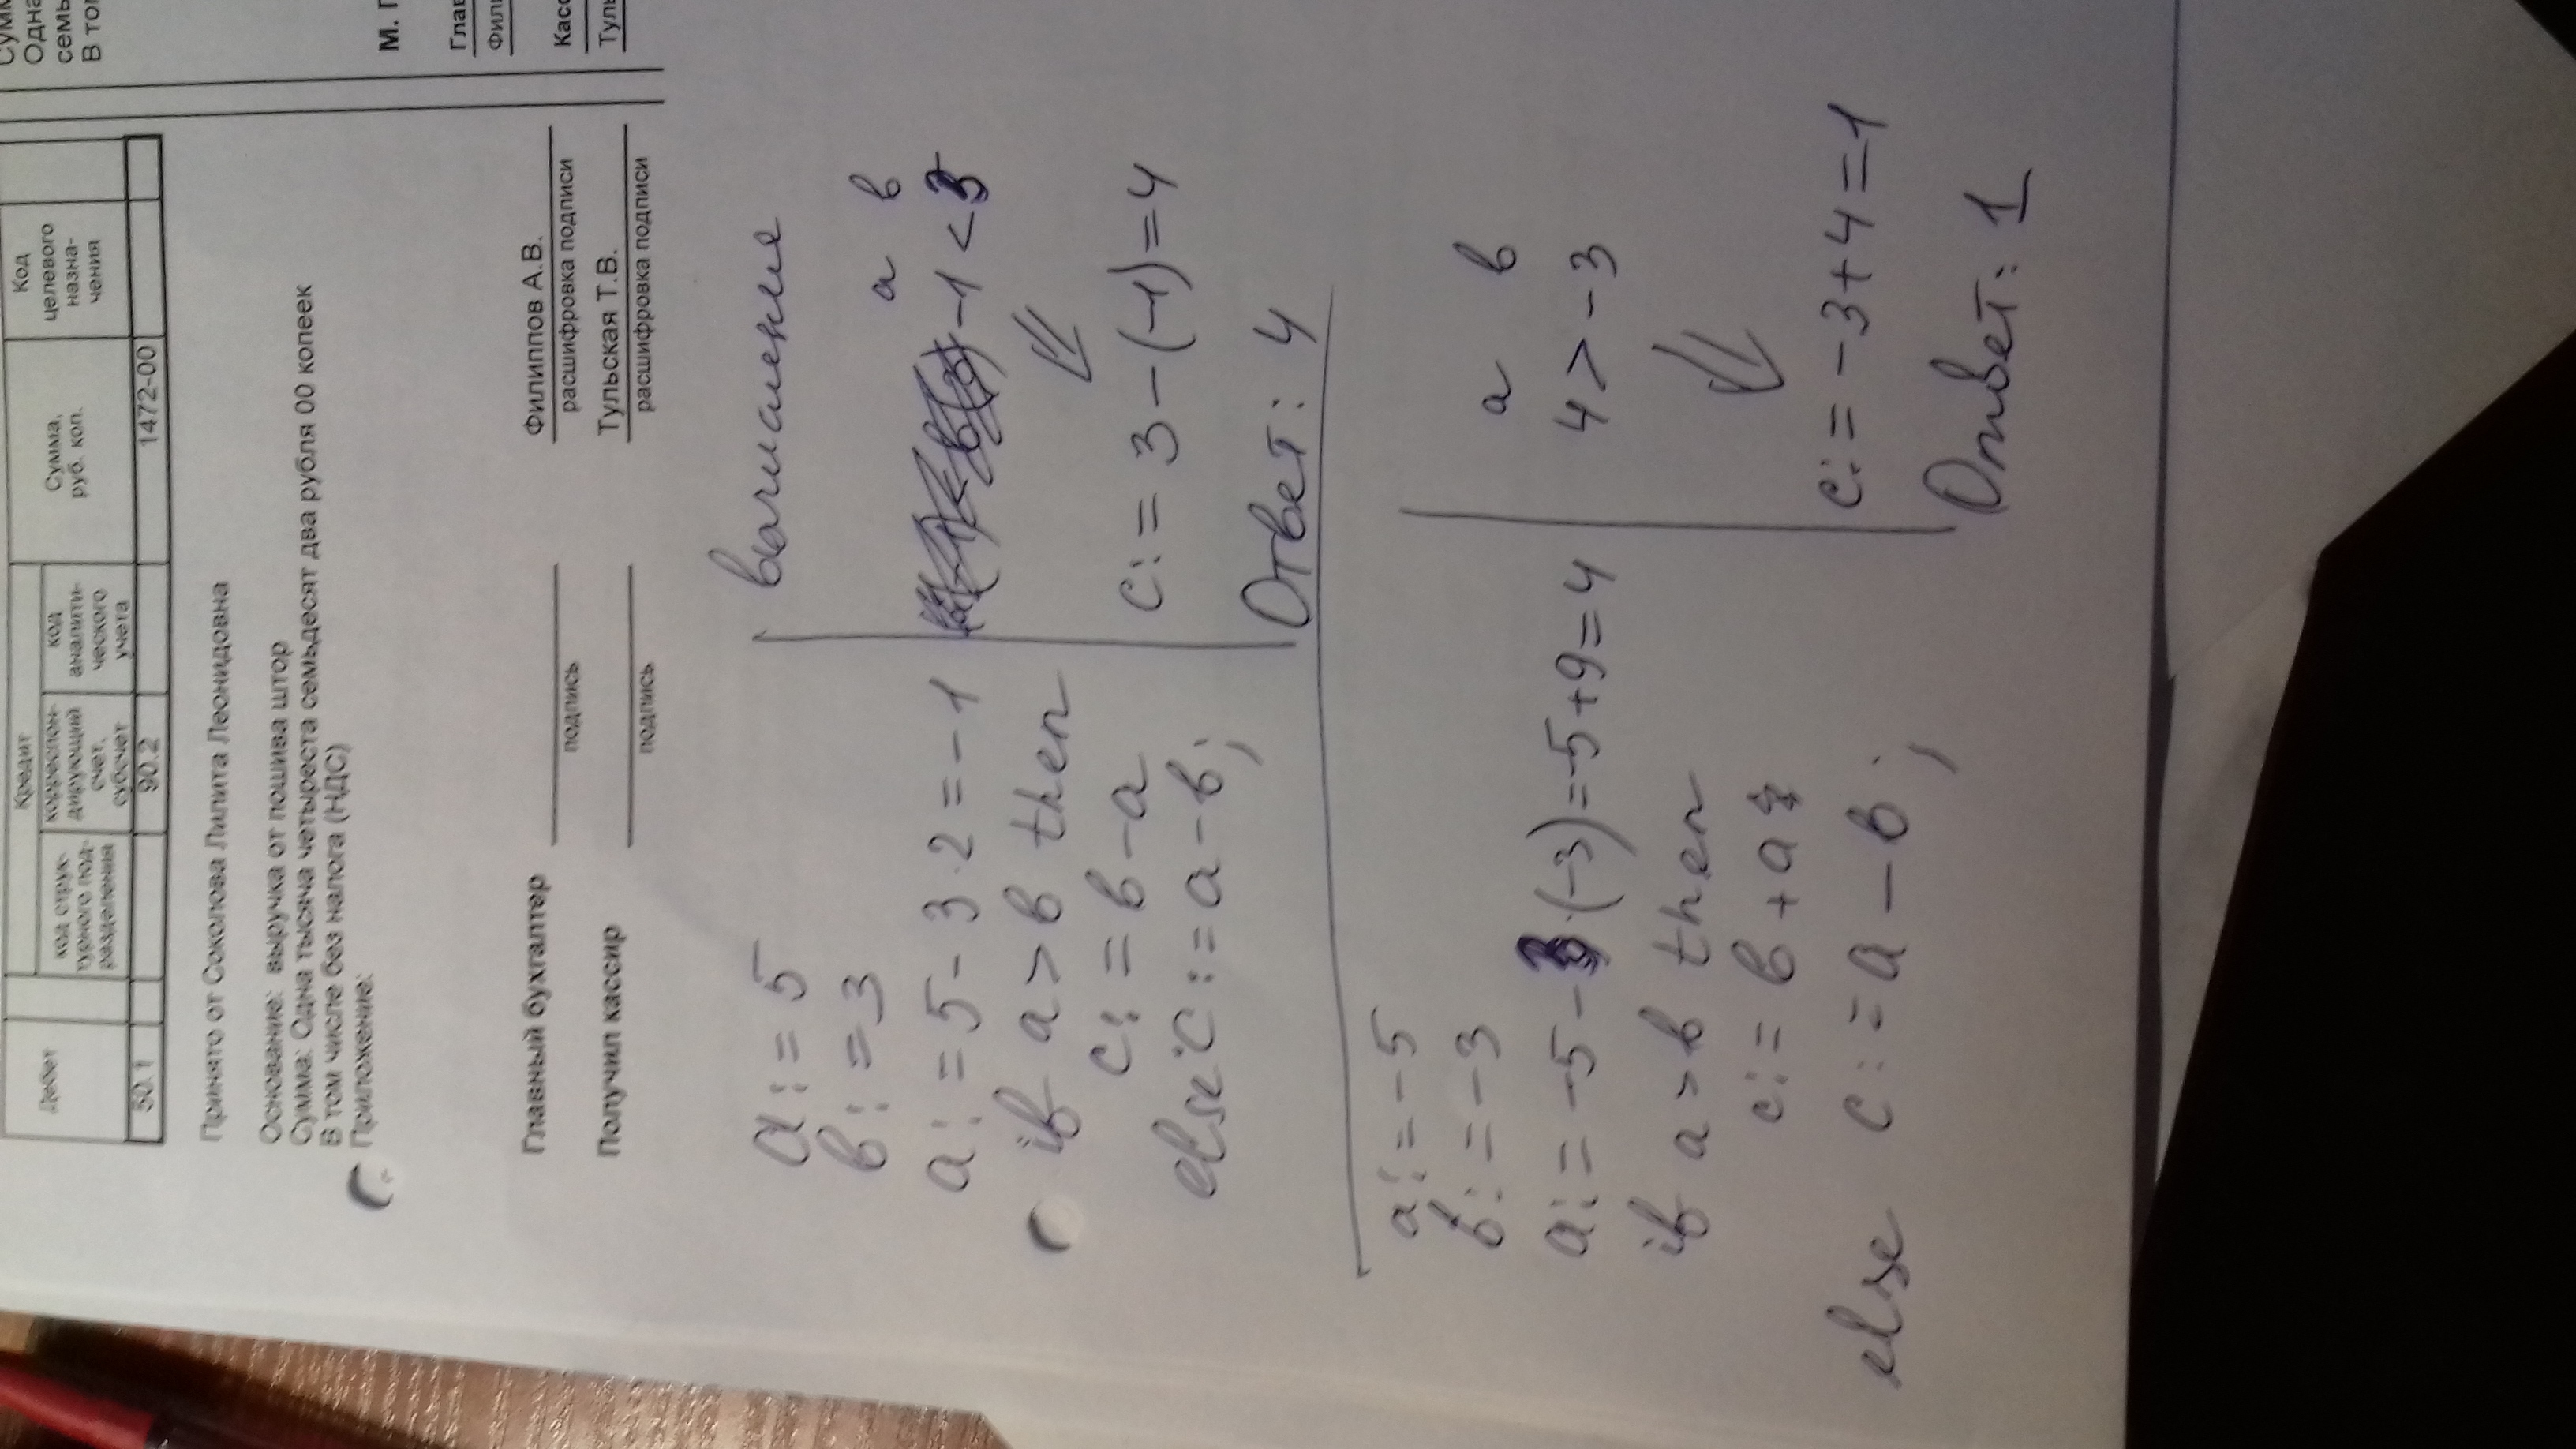 Сумм
Одна
семь
В том
М. П
Глав
Фил
Касс
Туль
Дебет
Кредит
Сумма, руб. коп.
Код целевого назна-чения
код струк-турного под-разделения
корреспон-дирующий счет, субсчет
код аналити-ческого учета
50.1 90.2 1472-00
Принято от Соколова Лилита Леонидовна
Основание: выручка от пошива штор
Сумма: Одна тысяча четыреста семьдесят два рубля 00 копеек
В том числе без налога (НДС)
Приложение:
Главный бухгалтер Филиппов А.В.
подпись расшифровка подписи
Получил кассир Тульская Т.В.
подпись расшифровка подписи
вычисление
a:=5
b:=3
a:=5-3·2=-1
if a>b then
c:=b-a
else c:=a-b;
a b
-1<3
⇓
c:=3-(-1)=4
Ответ: 4
a:=-5
b:=-3
a:=-5-3·(-3)=-5+9=4
if a>b then
c:=b+a
else c:=a-b;
a b
4>-3
⇓
c:=-3+4=1
Ответ: 1